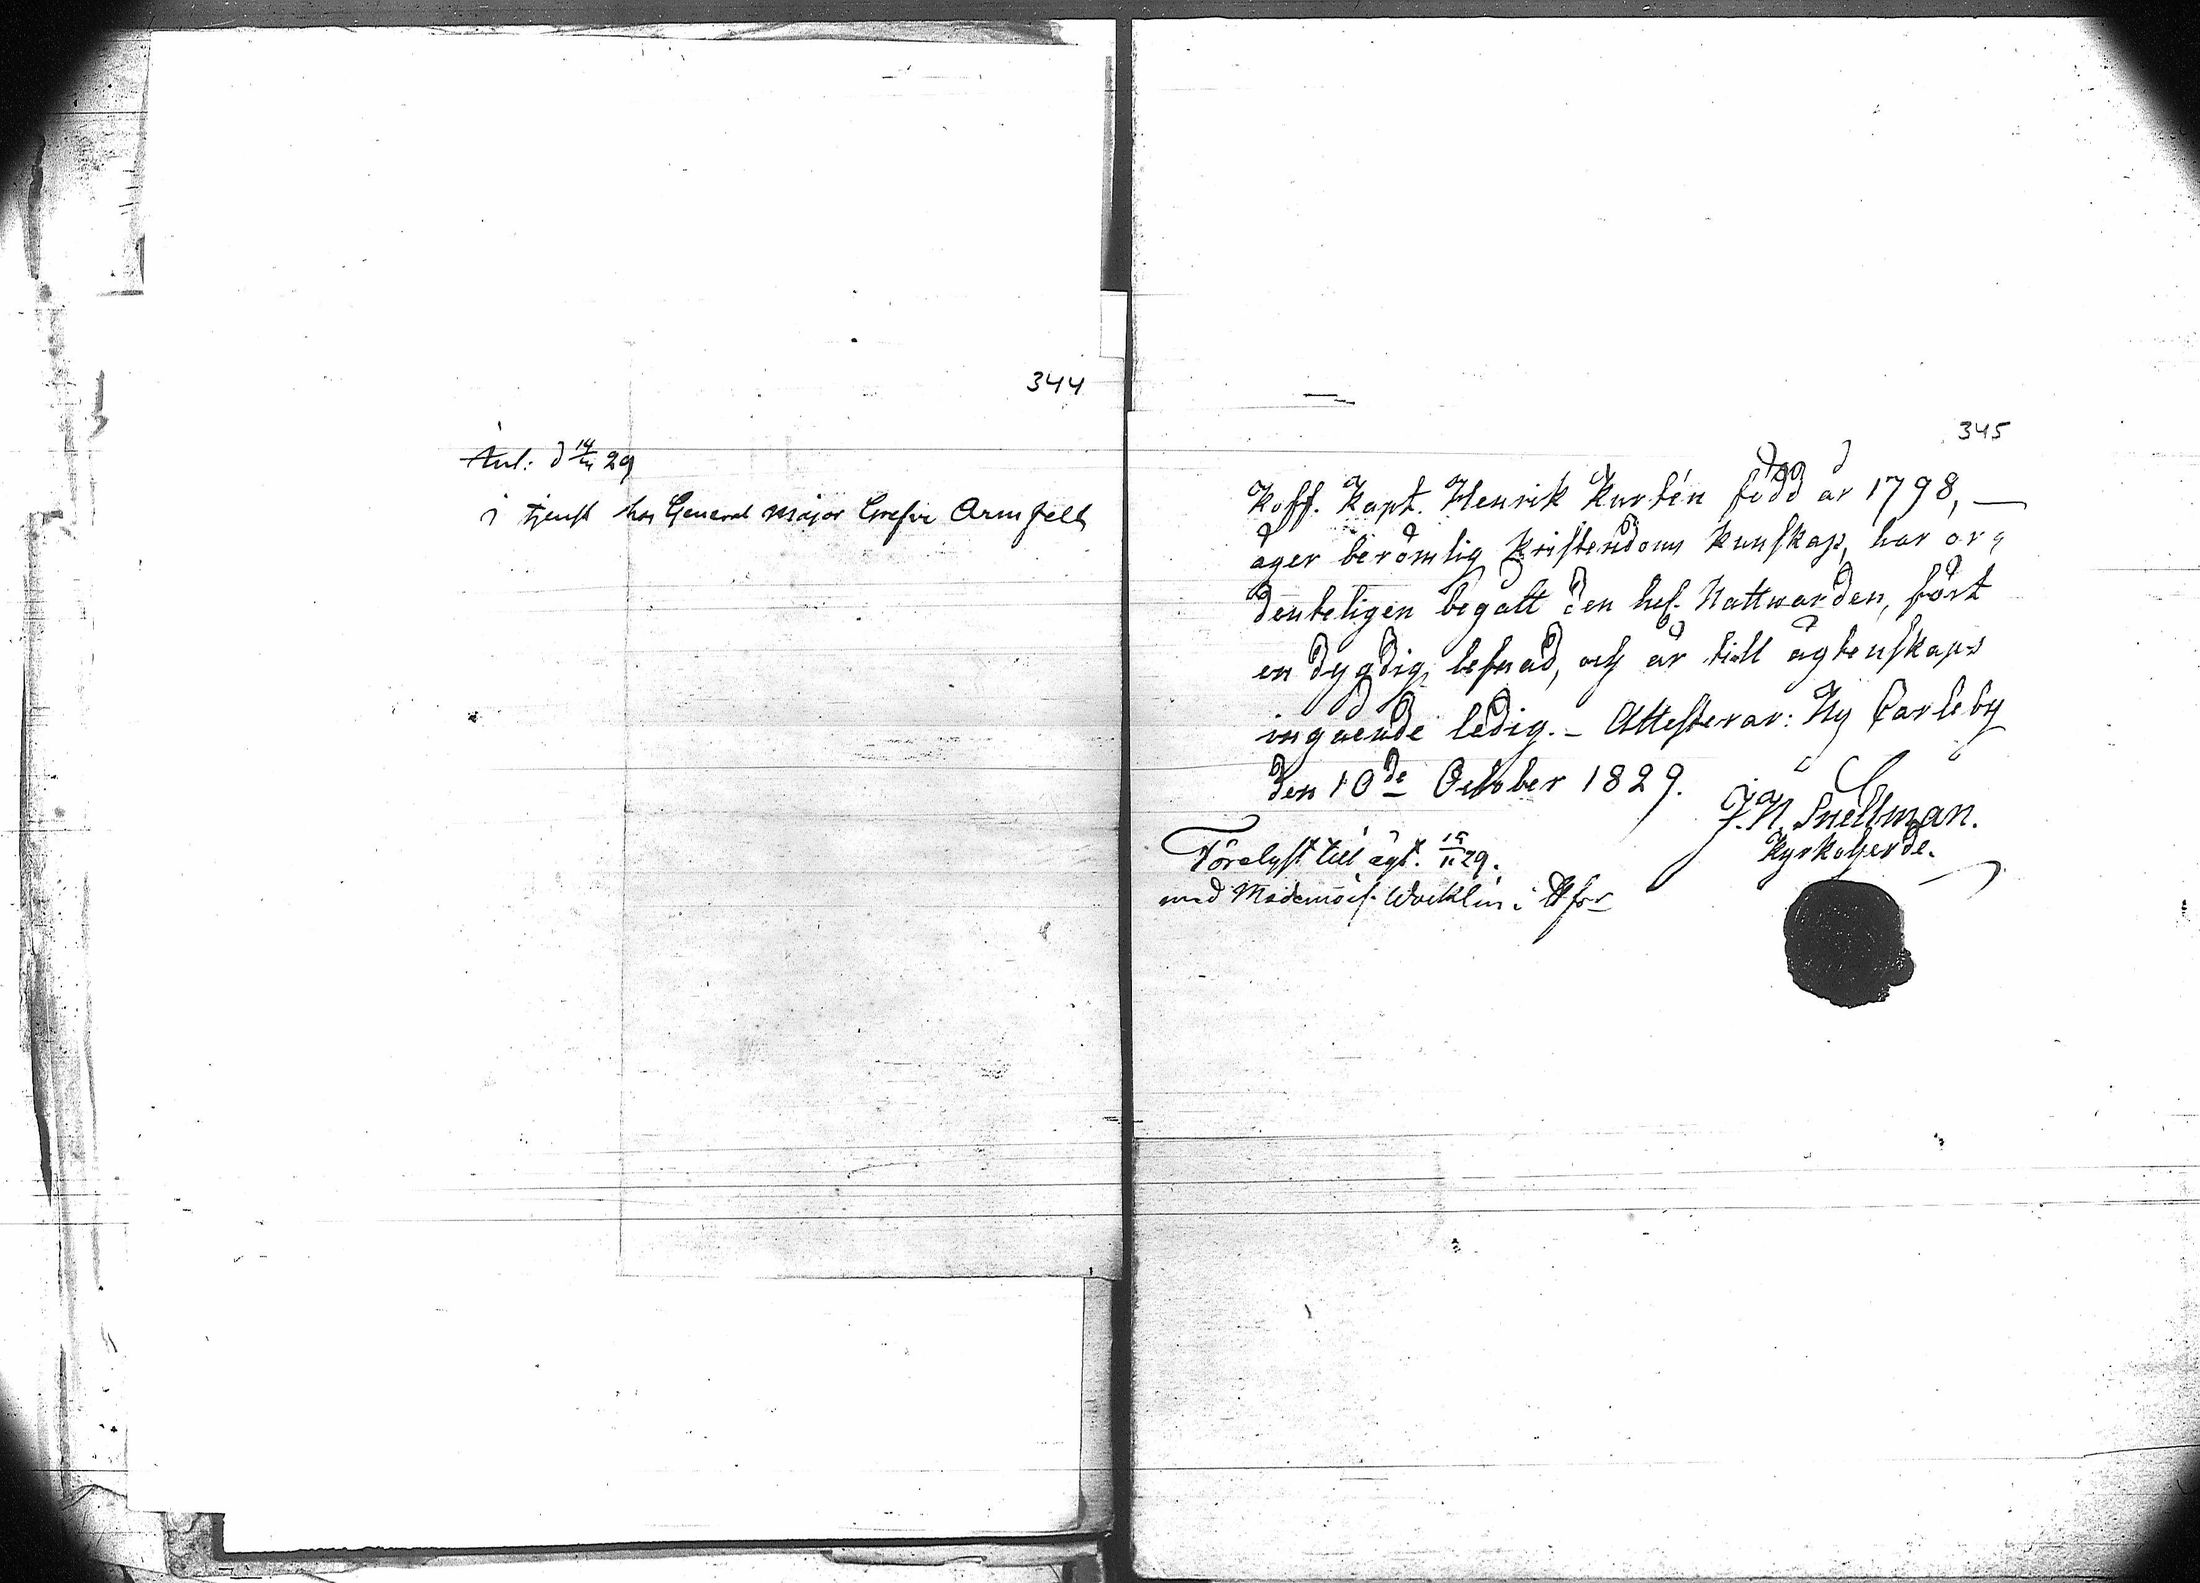 344
Anl: d 14/11 29
i tjenst hos General Major Grefve Armfelt
345
Koff. Kapt. Henrik Kurtén född år 1798, —
äger berömlig Kristendoms Kunskap, har or¬
denteligen begått den hel. Nattwarden, fört
en dygdig lefnad, och är till ägtenskaps
ingående ledig. – Attesterar: Ny Carleby
den 10de October 1829.
J. N. Snellman.
Kyrkoherde.
Förelyst till ägt. 15/11 29.
med Mademois. Wacklin i H:fors